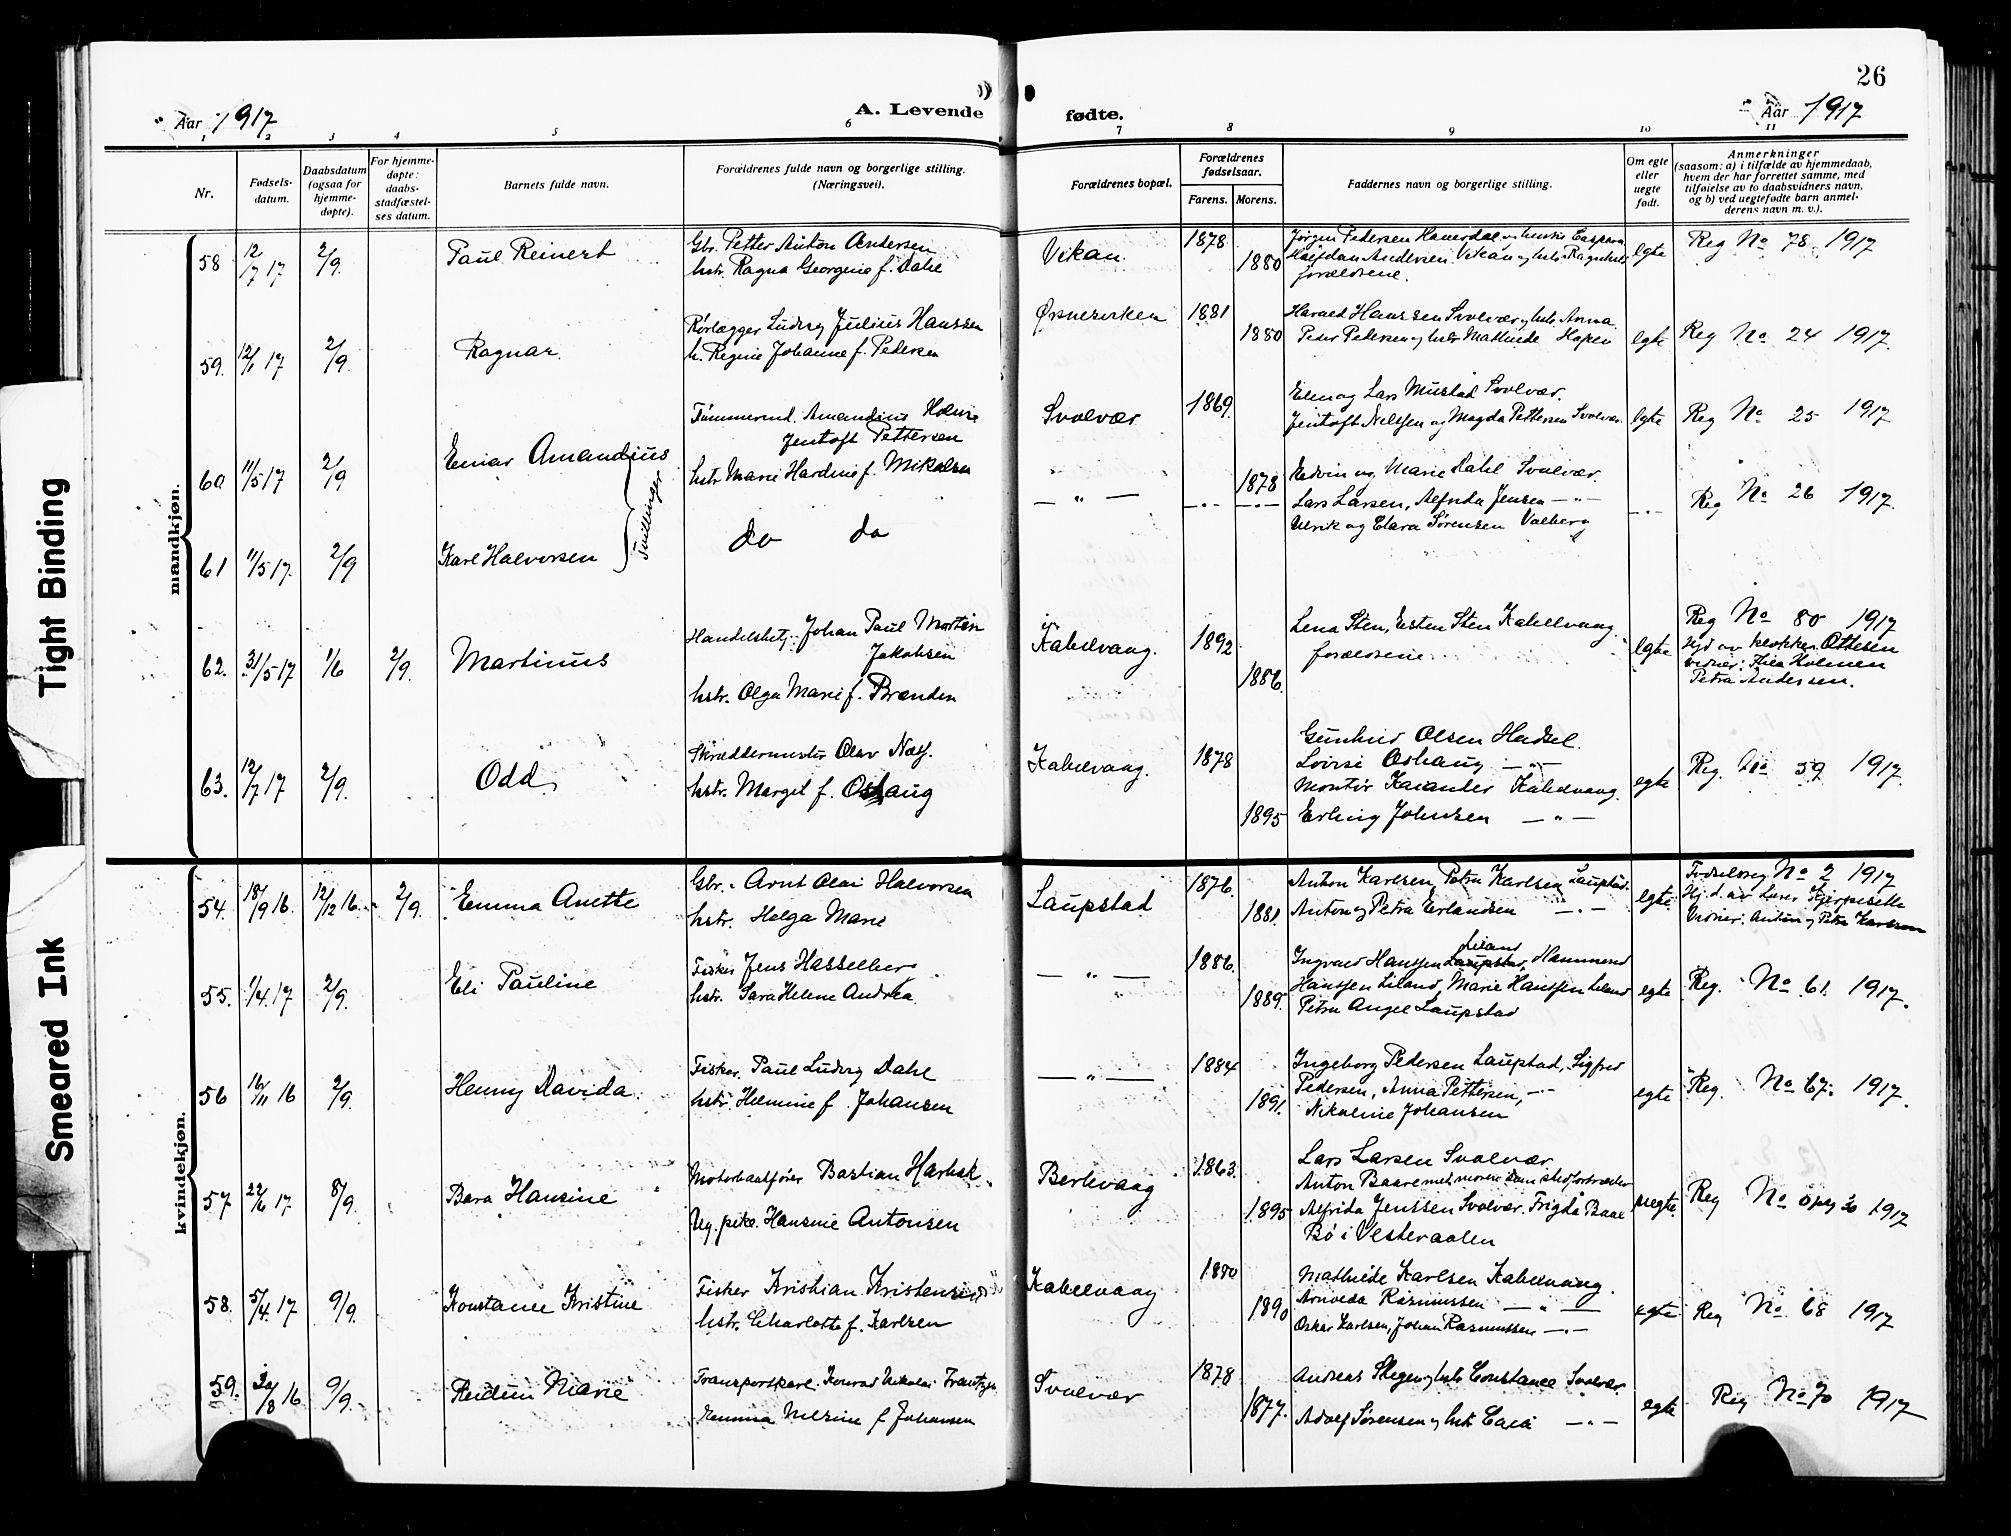 26
Aar 1917
A. Levende
fødte.
Aar 1917
1 2 3 4 5 6 7 8 9 10 11
Nr.
Fødsels-
datum.
Daabsdatum
(ogsaa for
hjemme-
døpte).
For hjemme-
døpte:
daabs-
stadfæstel-
ses datum.
Barnets fulde navn.
Forældrenes fulde navn og borgerlige stilling.
(Næringsvei).
Forældrenes bopæl.
Forældrenes
fødselsaar.
Farens.
Morens.
Faddernes navn og borgerlige stilling.
Om egte
eller
uegte
født.
Anmerkninger
(saasom: a) i tilfælde av hjemmedaab,
hvem der har forrettet samme, med
tilføielse av to daabsvidners navn,
og b) ved uegtefødte barn anmel-
derens navn m. v.).
mandkjøn.
58 12/7 17 2/9. Paul Reinert
Gbr. Petter Anton Andersen
hstr. Ragna Georgine f. Dahl
Vikan. 1878 1880
Jørgen Pedersen
Halfdan Andersen Vikan og
forældrene.
egte
Reg No 78. 1917
59. 12/1 17 2/9. Ragnar.
Rørlægger Ludvig Julius Hanssen
h. Regine Johanne f. Pedersen
Ørsnesviken 1881 1880
Harald Hanssen Svolvær og hstr. Anna.
Peder Pedersen og hstr Mathilde Hopen
egte
Reg No 24 1917.
60 11/5 17 2/9 Einar Amandius
Tømmermd. Amandius
Jentoft Pettersen
hstr Marie Hardine f. Mikalsen
Svolvær 1869. 1878
og Lars Mustad Svolvær.
Jentoft Nilssen og Magda Pettersen Svolvær
egte
Reg No 25 1917
61 11/5 17. 2/9 Karl Halvorsen
Tvillinger
do do
— " —
Edvin og Marie Dahl Svolvær.
Lars Larsen, Alfrida Jensen — " —
Ulrik og Clara Sørensen Valberg
Reg No 26 1917.
62. 31/5 17 1/6 2/9. Martinus
Handelsbetj. Johan Paul Martin
Jakobsen
hstr. Olga Marie f. Brenden
Kabelvaag. 1892 1886.
Lena Sten, Esten Sten Kabelvaag.
forældrene.
egte
Reg No 80 1917
Hjd av klokker Ottesen
vidner: Thea Holmen
Petra Andersen.
63. 12/7 17 2/9. Odd
Skræddermester Olav Næss.
hstr. Margit f. Oshaug
Kabelvaag. 1878 1895
Olsen Hadsel.
Lovise Oshaug — " —
Montør Kabelvaag.
Erling Johnsen — " —
egte
Reg. No 59 1917.
kvindekjøn.
54. 18/9 16. 12/12 16. 2/9. Emma Anette
Gbr. Arnt Olai Halvorsen
hstr. Helga Marie
Laupstad 1876. 1881.
Anton Karlsen, Petra Karlsen Laupstad.
Anton og Petra Erlandsen — " —
egte
Fødselsreg No 2 1917
Hj. d. av Lærer
Vidner: Anton og Petra Karlsen
55. 1/4 17 2/9. Eli Pauline
Fisker Jens Hasselberg.
hstr. Sara Helene Andrea.
— " — 1886. 1889.
Liland
Ingvald Hanssen Laupstad,
Hanssen Liland, Marie Hanssen Liland
Petra Angel Laupstad
egte
Reg. No 61. 1917.
56 16/11 16 2/9. Henny Davida
Fisker. Paul Ludvig Dahl
hstr. Helmine f. Johansen
— " — 1884 1891.
Ingeborg Pedersen Laupstad, Sigfred
Pedersen, Anna Pettersen, — " —
Nikoline Johansen
egte
Reg. No 67. 1917.
57 22/6 17 8/9. Bara Hansine
Motorbaatfører Bastian
Ug. pike. Hansine Antonsen
1863. 1895
Lars Larsen Svolvær
Anton Baare
Alfrida Jenssen Svolvær. Frigda Baar
Bø i Vesteraalen
uegte.
Reg No 1917
58. 5/4 17 9/9. Konstance Kristine
Fisker Kristian Kristensen
hstr. Charlotte f. Karlsen
Kabelvaag 1880 1890
Mathilde Karlsen Kabelvaag.
Rasmussen — " —
Oskar Karlsen, Johan Rasmussen — " —
egte
Reg No 68 1917
59. 30/8 16 9/9. Reidun Marie
Transportkarl. Konrad Nikolai Frantzen
Emma f Johansen
Svolvær 1878 1877.
Andreas og hstr Constance Svolvær
Adolf Sørensen og hstr — " —
egte
Reg No 70 1917
Tight Binding
Smeared Ink